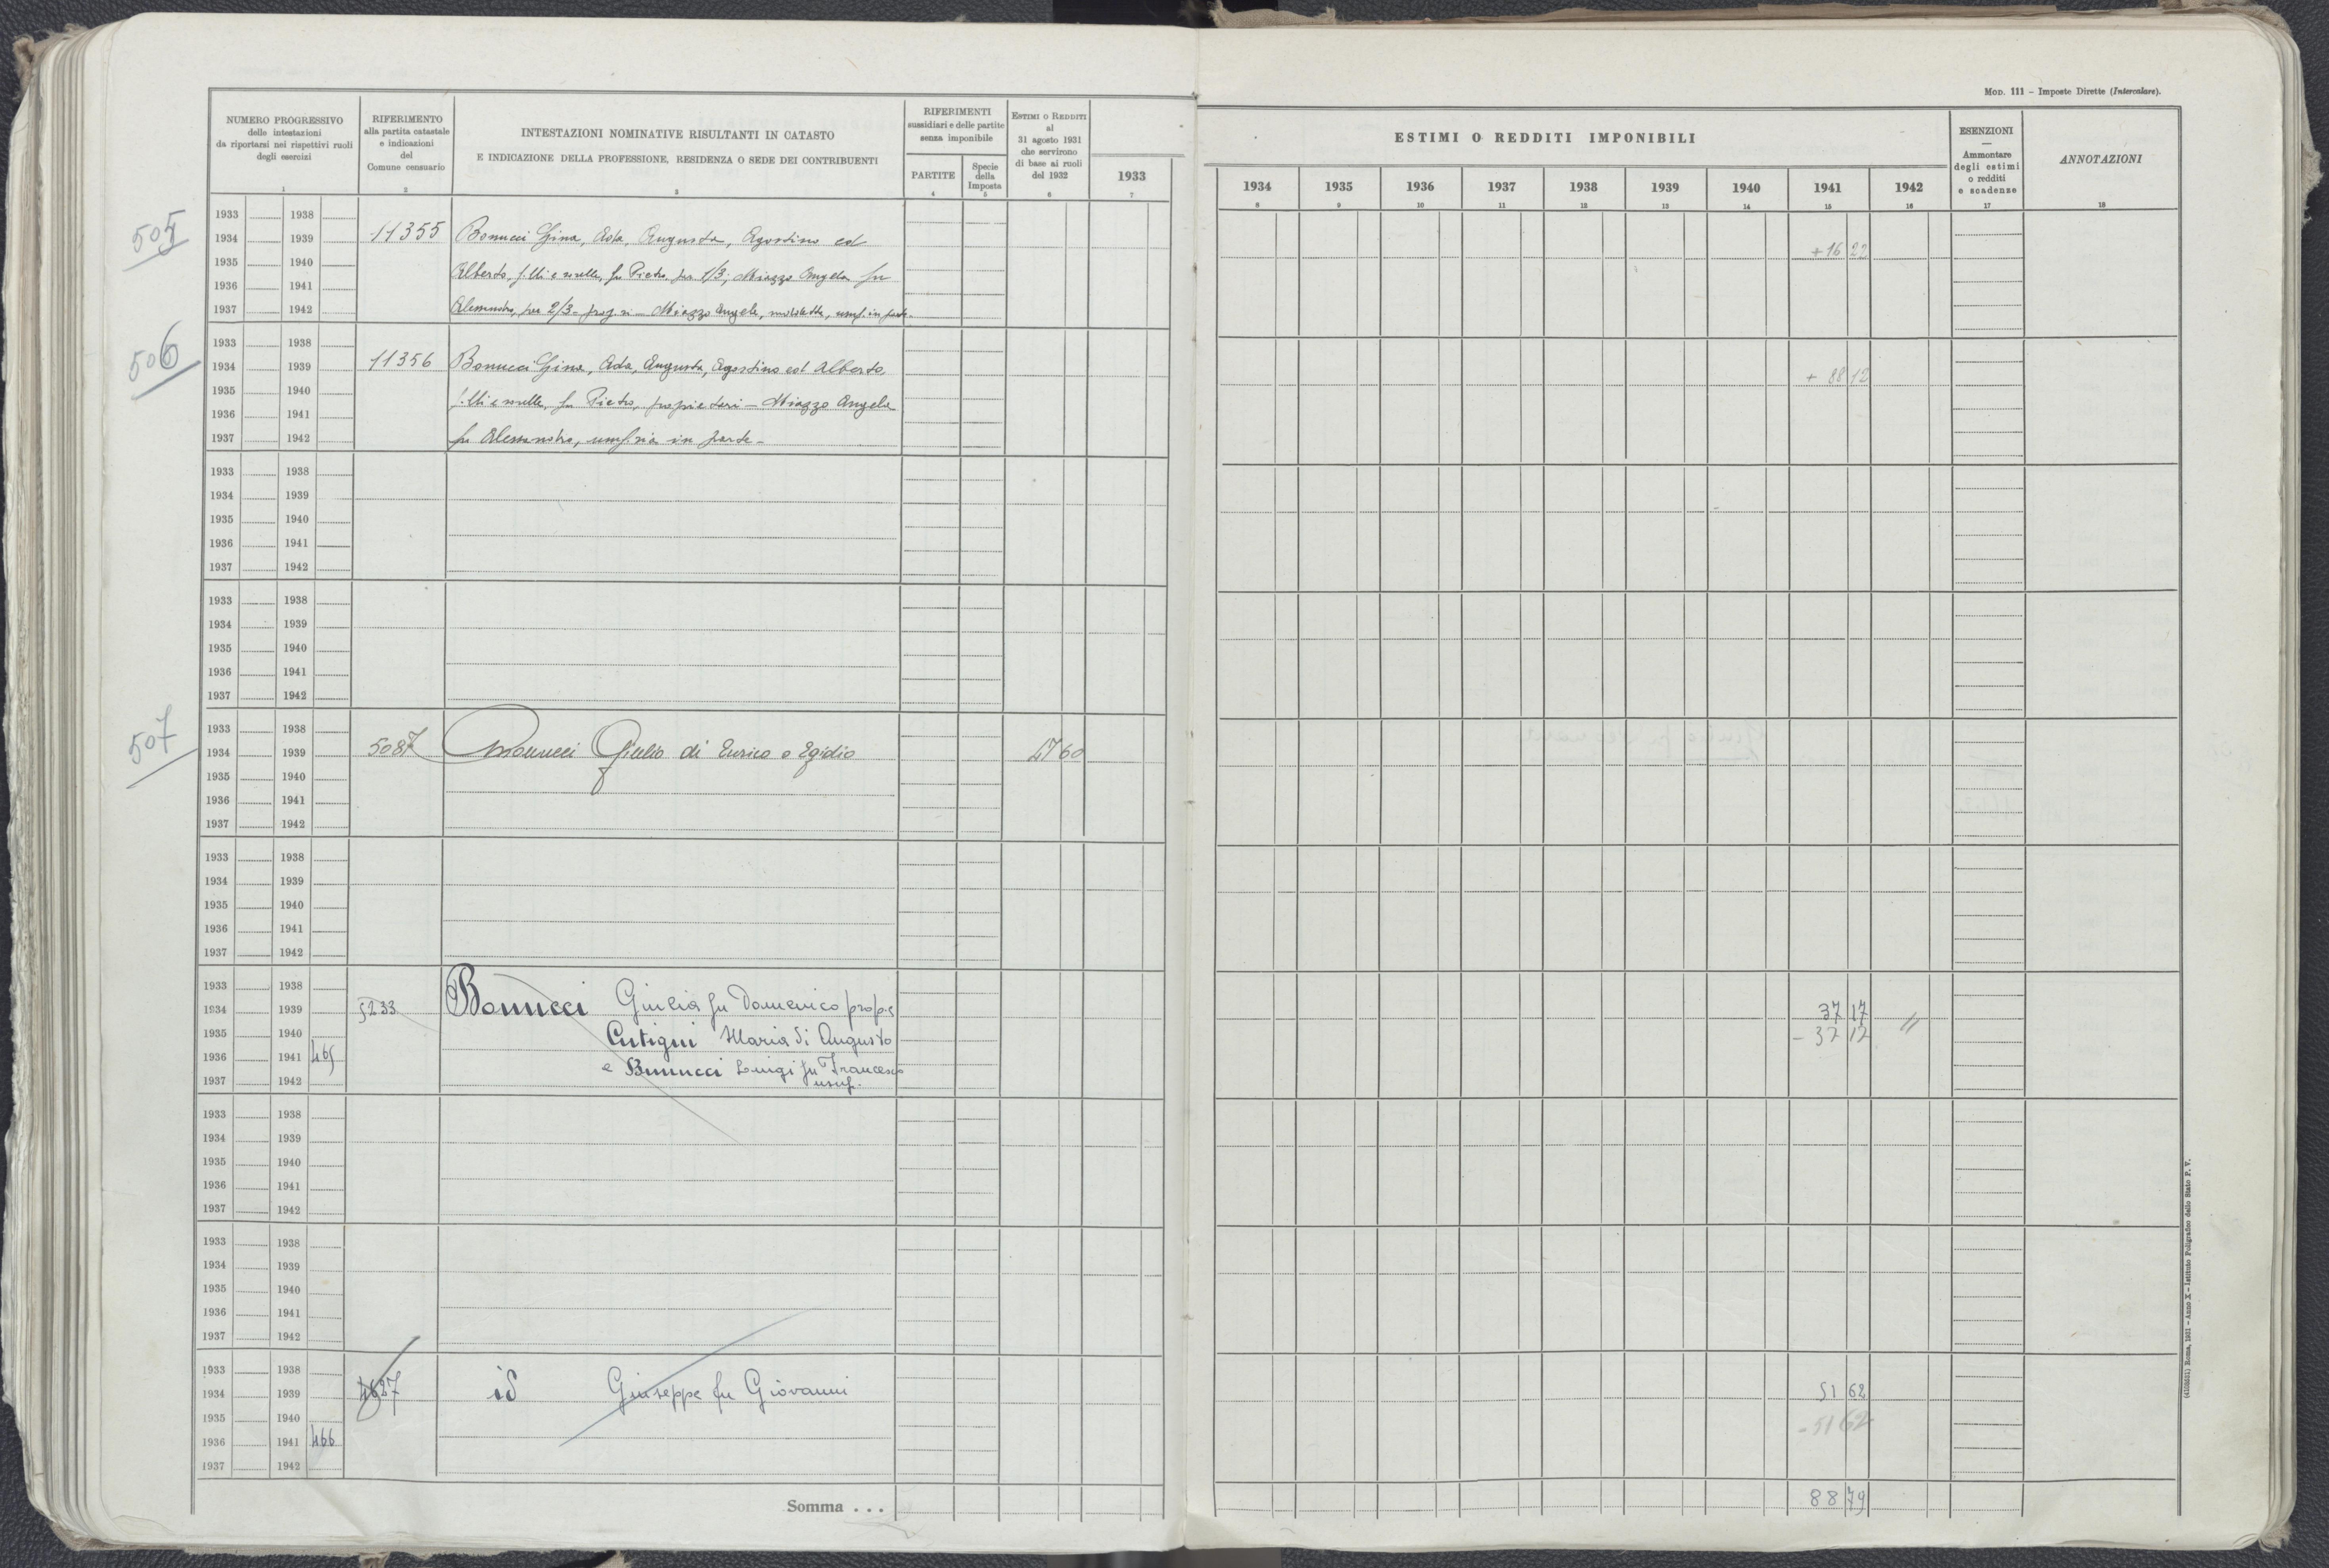 MOD. 111 – Imposte Dirette (Intercalare).
NUMERO PROGRESSIVO
delle intestazioni
da riportarsi nei rispettivi ruoli
degli esercizi
1
RIFERIMENTO
alla partita catastale
e indicazioni
del
Comune censuario
2
INTESTAZIONI NOMINATIVE RISULTANTI IN CATASTO
E INDICAZIONE DELLA PROFESSIONE, RESIDENZA O SEDE DEI CONTRIBUENTI
3
RIFERIMENTI
sussidiari e delle partite
senza imponibile
PARTITE
4
Specie
della
Imposta
5
ESTIMI O REDDITI
al
31 agosto 1931
che servirono
di base ai ruoli
del 1932
6
1933
7
ESTIMI O REDDITI IMPONIBILI
1934 1935 1936 1937 1938 1939 1940 1941 1942
8 9 10 11 12 13 14 15 16
ESENZIONI
—
Ammontare
degli estimi
o redditi
e scadenze
17
ANNOTAZIONI
18
505
1933 1938
1934 1939 11355 Bonucci Gina, Ada, Augusta, Agostino ed +16 22
1935 1940 Alberto, f.lli e sorelle, fu Pietro, per 1/3; Miazzo Angela fu
1936 1941
1937 1942 Alessandro, per 2/3 - prop.ri - Miazzo Angela, suddetta, usuf. in parte -
506
1933 1938
1934 1939 11356 Bonucci Gina, Ada, Augusta, Agostino ed Alberto, + 88 12
1935 1940
1936 1941 f.lli e sorelle, fu Pietro, proprietari - Miazzo Angela
1937 1942 fu Alessandro, usuf.ria in parte -
1933 1938
1934 1939
1935 1940
1936 1941
1937 1942
1933 1938
1934 1939
1935 1940
1936 1941
1937 1942
507
1933 1938
1934 1939 5087 Bonucci Giulio di Enrico e Egidio 47 60
1935 1940
1936 1941
1937 1942
1933 1938
1934 1939
1935 1940
1936 1941
1937 1942
1933 1938
1934 1939 5233 Bonucci Giulia fu Domenico prop. e 37 17
1935 1940 Cutigni Maria di Augusto - 37 17 //
1936 1941 465
1937 1942 e Bonucci Luigi fu Francesco
usuf.
1933 1938
1934 1939
1935 1940
1936 1941
1937 1942
1933 1938
1934 1939
1935 1940
1936 1941
1937 1942
1933 1938
1934 1939 4627 id Giuseppe fu Giovanni 51 62
1935 1940 - 51 62
1936 1941 466
1937 1942
Somma . . . 88 79
(4105551) Roma, 1931 – Anno X – Istituto Poligrafico dello Stato P. V.